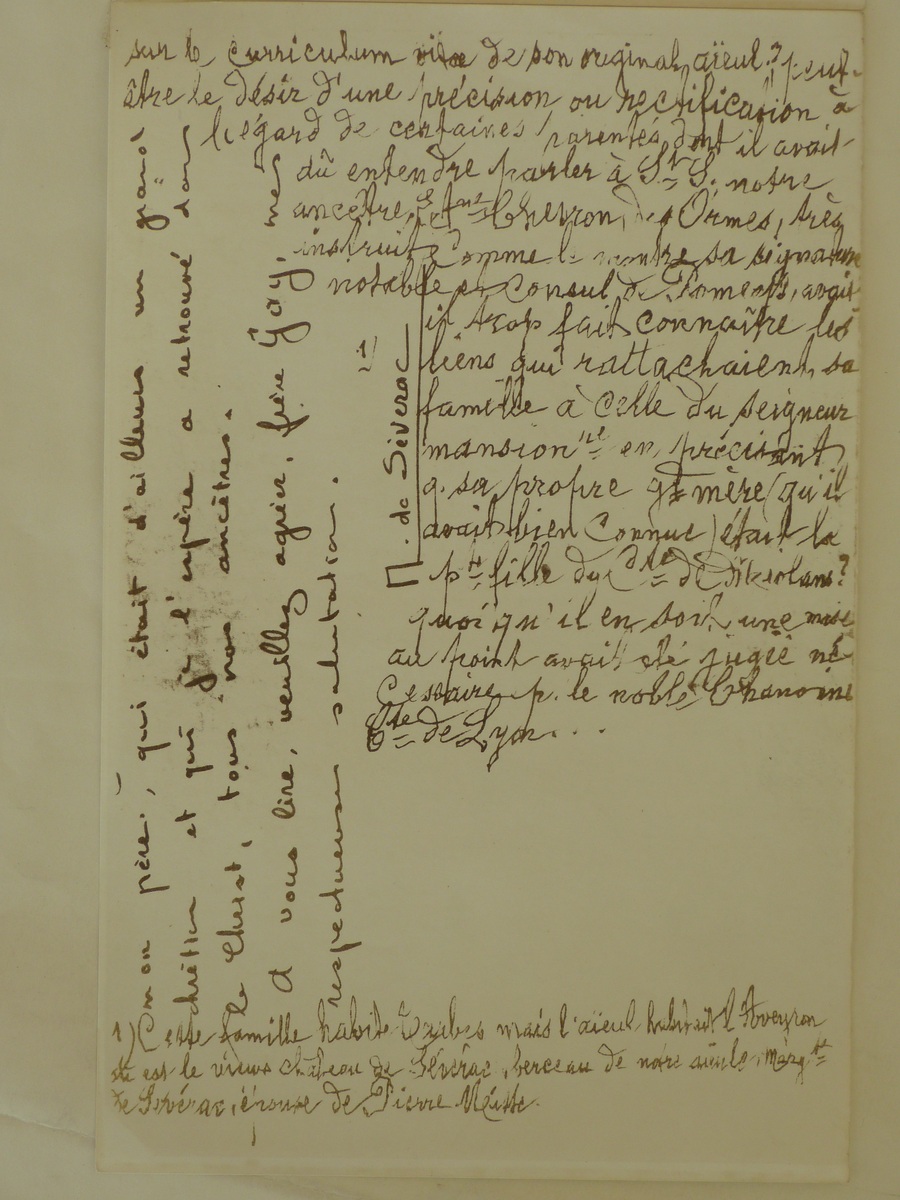 sur le curriculum vitæ de son original aïeul? peut-
être le désir d'une précision ou rectification à
l'égard de certaines parentés dont il avait
dû entendre parler à St S. notre
ancêtre, Ant.ne Cheyron, des Ormes, très
instruit comme le montre sa signature
notable et Consul de, avait
il trop fait connaître les
liens qui rattachaient sa
famille à celle du seigneur
mansionnel en précisant
q. sa propre gd mère (qu'il
avait bien connue) était la
pte fille du de
quoi qu'il en soit, une mise
au point avait été jugée né
cessaire p. le noble Chanoine
Cte de Lyon...
mon père, qui était d'ailleurs un grand
chrétien et qui je l'espère a retrouvé dans
le Christ, tous nos ancêtres.
A vous lire, veuillez agréer, frère Guy, mes
respectueuses salutations.
M. de Séverac 1)
1) Cette famille habite Tarbes mais l'aïeul habitait l'Aveyron
où est le vieux château de Sévérac, berceau de notre aïeule, Marg.te
de Sévérac, épouse de Pierre